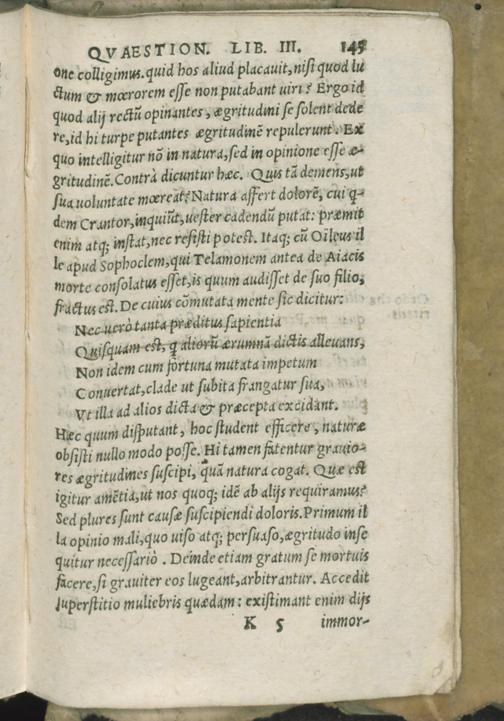 QVAESTION. LIB. III. 145
one colligimus. quid hos aliud placauit, nisi quod lu
ctum & mœrorem esse non putabant uiri? Ergo id
quod alij rectũ opinantes, ægritudini se solent dede
re, id hi turpe putantes ægritudinẽ repulerunt. Ex
quo intelligitur nõ in natura, sed in opinione esse æ-
gritudinẽ. Contrà dicuntur hæc. Quis tã demens, ut
sua voluntate mœreat? Natura affert dolorẽ, cui q-
dem Crantor, inquiũt, uester cadendũ putat: præmit
enim atq; instat, nec resisti potest. Itaq; cũ Oileus il
le apud Sophoclem, qui Telamonem antea de Aiacis
morte consolatus esset, is quum audisset de suo filio,
fractus est. De cuius cõmutata mente sic dicitur:
Nec uerò tanta præditus sapientia
Quisquam est, q aliorũ ærumnã dictis alleuans,
Non idem cum fortuna mutata impetum
Conuertat, clade ut subita frangatur sua,
Vt illa ad alios dicta & præcepta excidant.
Hæc quum disputant, hoc student efficere, naturæ
obsisti nullo modo posse. Hi tamen fatentur grauio-
res ægritudines suscipi, quã natura cogat. Quæ est
igitur amẽtia, ut nos quoq; idẽ ab alijs requiramus?
Sed plures sunt causæ suscipiendi doloris. Primum il
la opinio mali, quo uiso atq; persuaso, ægritudo inse
quitur necessariò. Deinde etiam gratum se mortuis
facere, si grauiter eos lugeant, arbitrantur. Accedit
superstitio muliebris quædam: existimant enim dijs
K 5 immor-